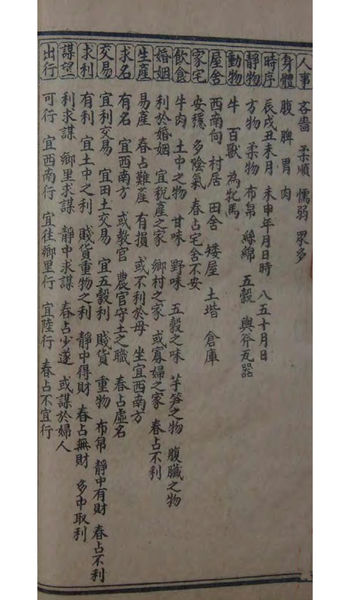 人事 吝嗇 柔順 懦弱 眾多
身體 腹 脾 胃 肉
時序 辰戌丑未月 未申年月日時 八五十月日
靜物 方物 柔物 布帛 絲綿 五穀 輿斧瓦器
動物 牛 百獸 為牝馬
屋舍 西南向 村居 田舍 矮屋 土堦 倉庫
家宅 安穩 多陰氣 春占宅舍不安
飲食 牛肉 土中之物 甘味 野味 五穀之味 芋筍之物 腹臟之物
婚姻 利於婚姻 宜稅產之家 鄉村之家 或寡婦之家 春占不利
生產 易產 春占難產 有損 或不利於母 坐宜西南方
求名 有名 宜西南方 或教官 農官守土之職 春占虛名
交易 宜利交易 宜田土交易 宜五穀利 賤貨 重物 布帛 靜中有財 春占不利
求利 有利 宜土中之利 賤貨重物之利 靜中得財 春占無財 多中取利
謀望 利求謀 鄉里求謀 靜中求謀 春占少遂 或謀於婦人
出行 可行 宜西南行 宜往鄉里行 宜陸行 春占不宜行